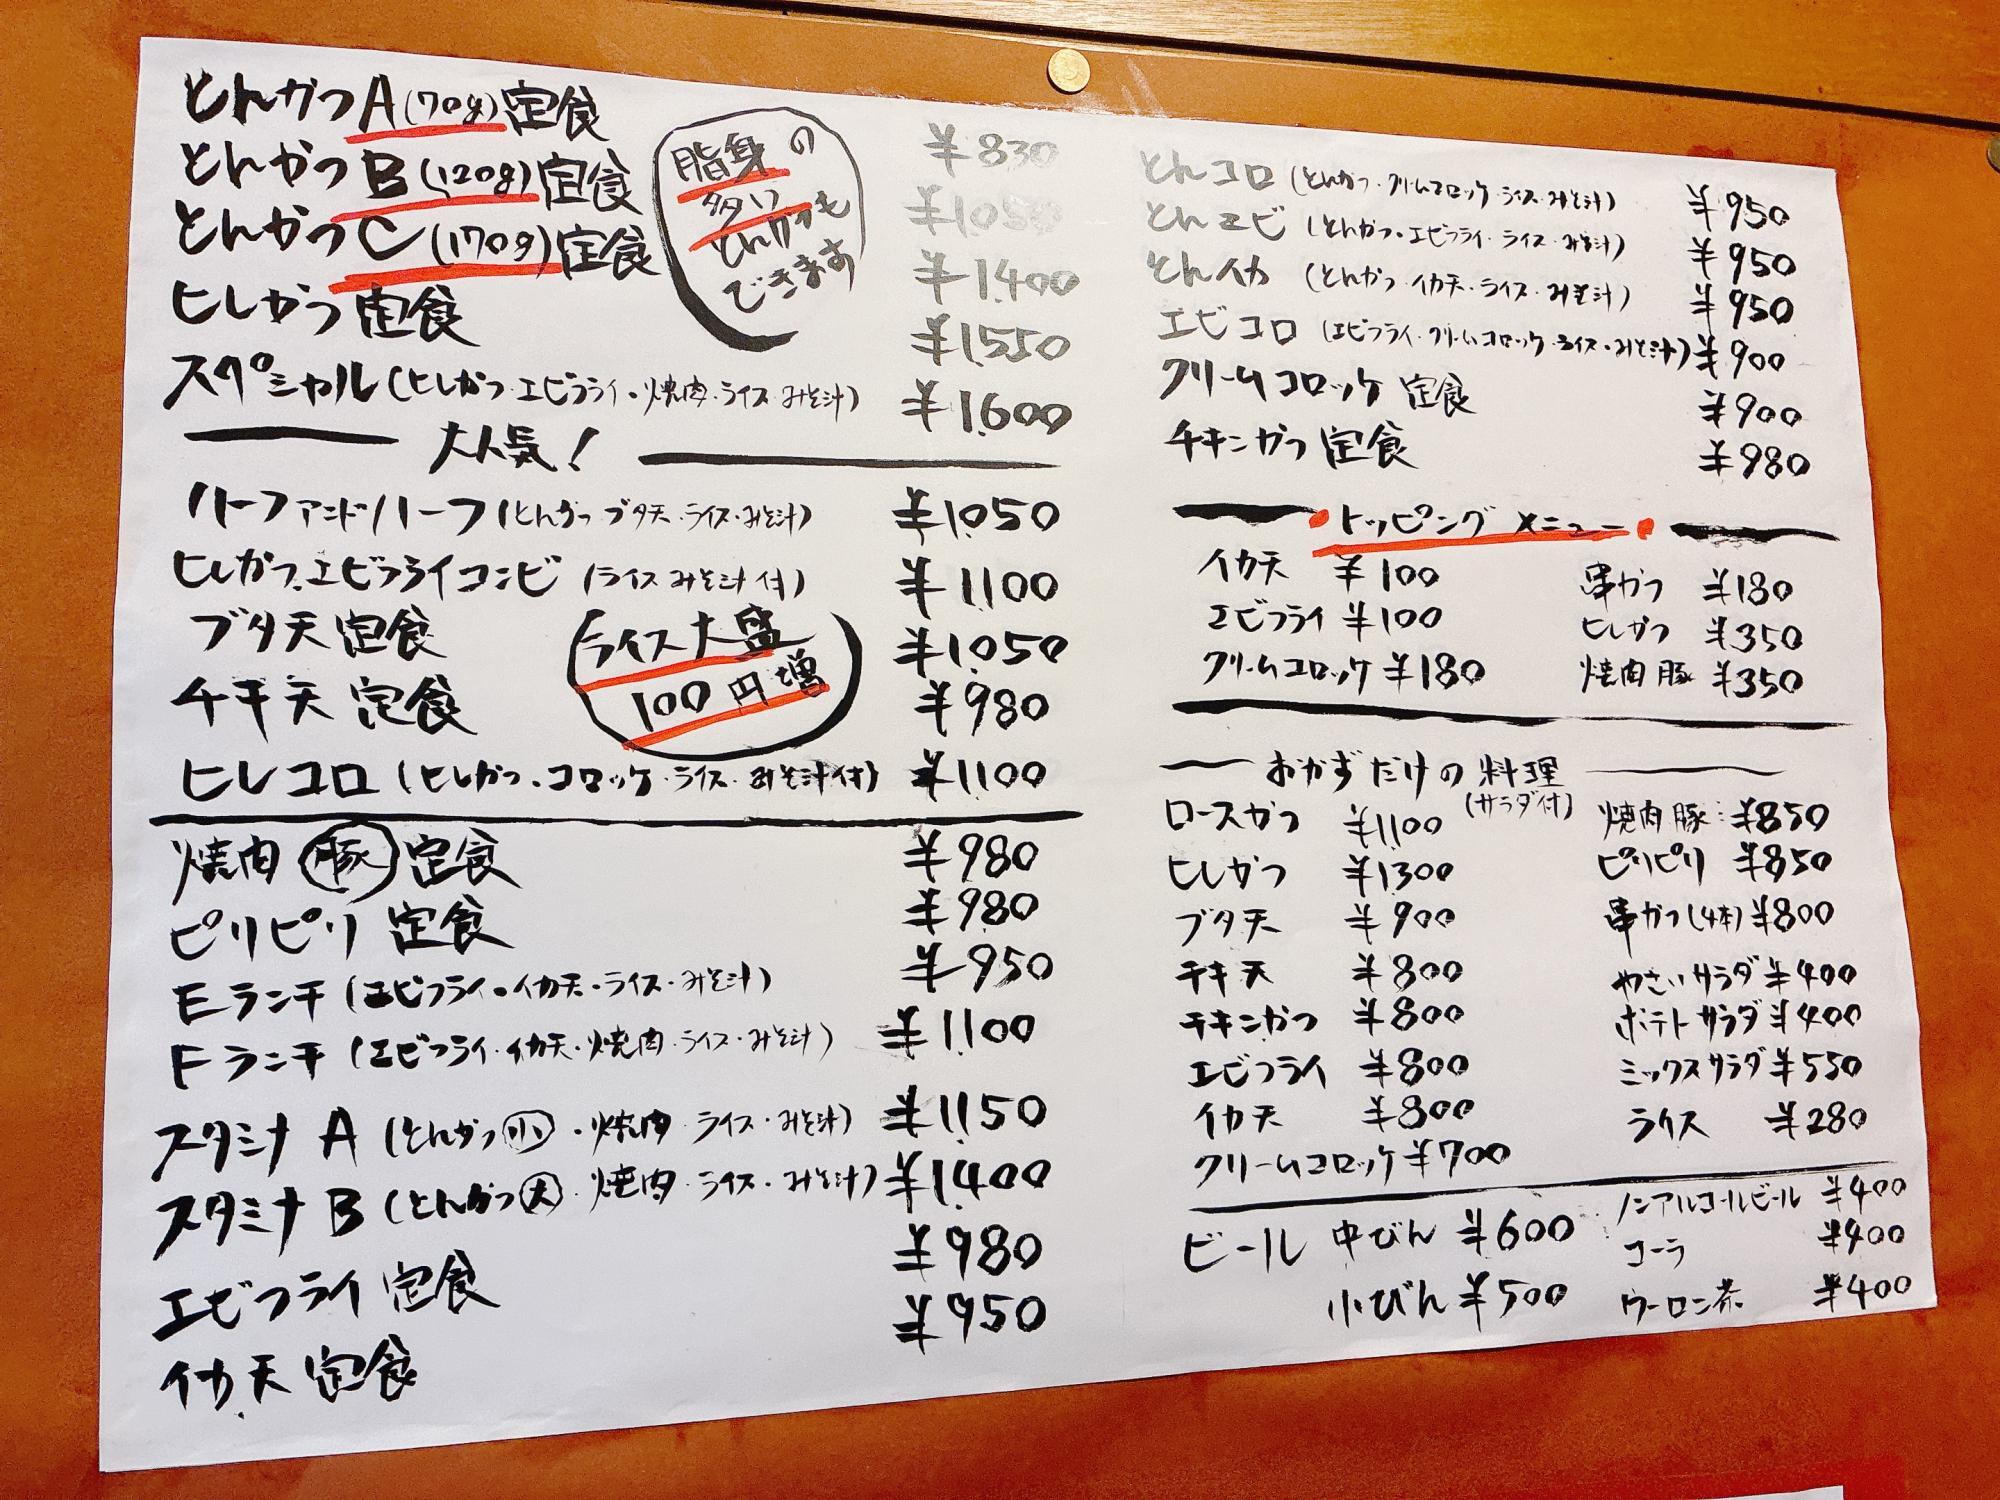 とんかつA(70g)定食 ¥830
とんかつB(120g)定食 ¥1050
とんかつC(170g)定食 ¥1400
脂身の
多い
とんかつも
できます
ヒレかつ定食 ¥1550
スペシャル(ヒレかつ・エビフライ・焼肉・ライス・みそ汁) ¥1600
大人気!
ハーフアンドハーフ(とんかつ ブタ天・ライス・みそ汁) ¥1050
ヒレかつ、エビフライコンビ(ライス みそ汁付) ¥1100
ブタ天定食 ¥1050
チキ天定食 ¥980
ライス大盛
100円増
ヒレコロ(ヒレかつ・コロッケ・ライス・みそ汁付) ¥1100
焼肉豚定食 ¥980
ピリピリ定食 ¥980
Eランチ(エビフライ・イカ天・ライス・みそ汁) ¥950
Fランチ(エビフライ・イカ天・焼肉・ライス・みそ汁) ¥1100
スタミナA(とんかつ小・焼肉・ライス・みそ汁) ¥1150
スタミナB(とんかつ大・焼肉・ライス・みそ汁) ¥1400
エビフライ定食 ¥980
イカ天定食 ¥950
とんコロ(とんかつ・クリームコロッケ・ライス・みそ汁) ¥950
とんエビ(とんかつ・エビフライ・ライス・みそ汁) ¥950
とんイカ(とんかつ・イカ天・ライス・みそ汁) ¥950
エビコロ(エビフライ・クリームコロッケ・ライス・みそ汁) ¥900
クリームコロッケ定食 ¥900
チキンかつ定食 ¥980
トッピングメニュー
イカ天 ¥100 串かつ ¥180
エビフライ ¥100 ヒレかつ ¥350
クリームコロッケ ¥180 焼肉豚 ¥350
おかずだけの料理
(サラダ付)
ロースかつ ¥1100 焼肉豚 ¥850
ヒレかつ ¥1300 ピリピリ ¥850
ブタ天 ¥900 串かつ(4本) ¥800
チキ天 ¥800 やさいサラダ ¥400
チキンかつ ¥800 ポテトサラダ ¥400
エビフライ ¥800 ミックスサラダ ¥550
イカ天 ¥800 ライス ¥280
クリームコロッケ ¥700
ビール 中びん ¥600 ノンアルコールビール ¥400
コーラ ¥400
小びん ¥500 ウーロン茶 ¥400